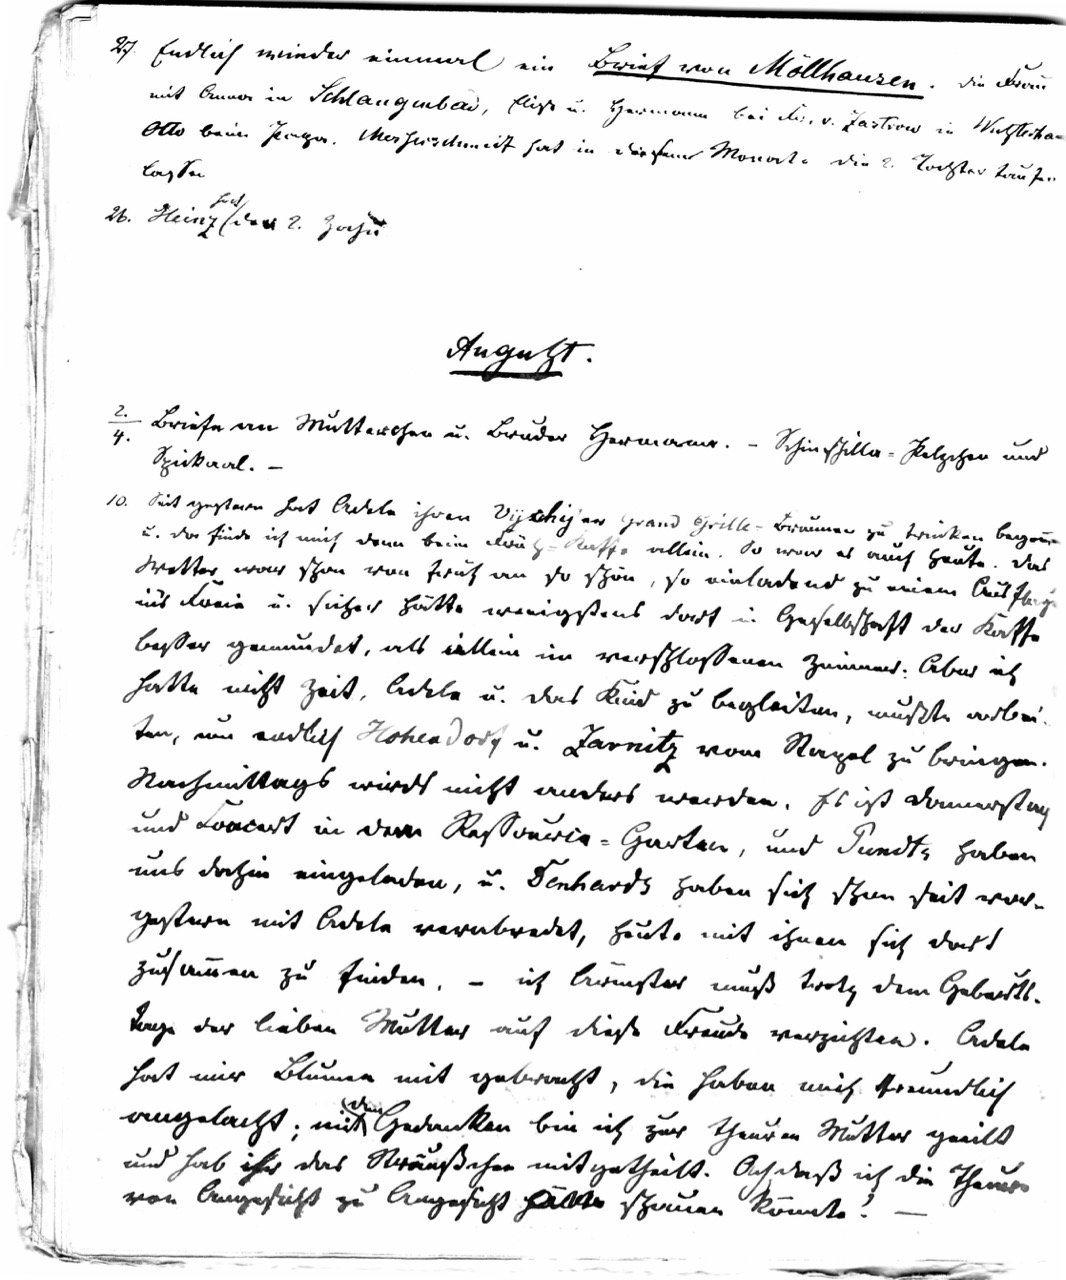 27. Endlich wieder einmal ein Brief von Möllhausen. Die Frau
mit Anna in Schlangenbad, Elise u. Hermann bei Fr. v. Zastrow in
Otto beim Papa. Messerschmidt hat in diesem Monate die 2. Tochter taufen
lassen
26. Heinz hat den 2. Zahn
August.
2./4. Briefe an Mutterchen u. Bruder Hermann. – Schinschilla-Pelzchen und
Spickaal. –
10. Seit gestern hat Adele ihren Vijchijer grand Grille-Brunnen zu trinken begonnen
u. da finde ich mich denn beim Früh-Kaffe allein. So war es auch heute. Das
Wetter war schon von früh an so schön, so einladend zu einem Ausfluge
ins Freie u. sicher hätte wenigstens dort in Gesellschaft der Kaffe
besser gemundet, als allein im verschlossenen Zimmer: Aber ich
hatte nicht Zeit, Adele u. das Kind zu begleiten, mußte arbei-
ten, um endlich Hohendorf u. Zarnitz vom Stapel zu bringen.
Nachmittags wirds nicht anders werden. Es ist Donnerstag
und Concert in dem Ressource-Garten, und Pundts haben
uns dahin eingeladen, u. Denhards haben sich schon seit vor-
gestern mit Adele verabredet, heute mit ihnen sich dort
zusammen zu finden. – ich Ärmster muß trotz dem Geburts-
tage der lieben Mutter auf diese Freude verzichten. Adele
hat mir Blumen mit gebracht, die haben mich freundlich
angelacht; mit den Gedanken bin ich zur theuren Mutter geeilt
und hab ihr das Sträußchen mitgetheilt. Ach daß ich die Theure
von Angesicht zu Angesicht schauen könnte! –